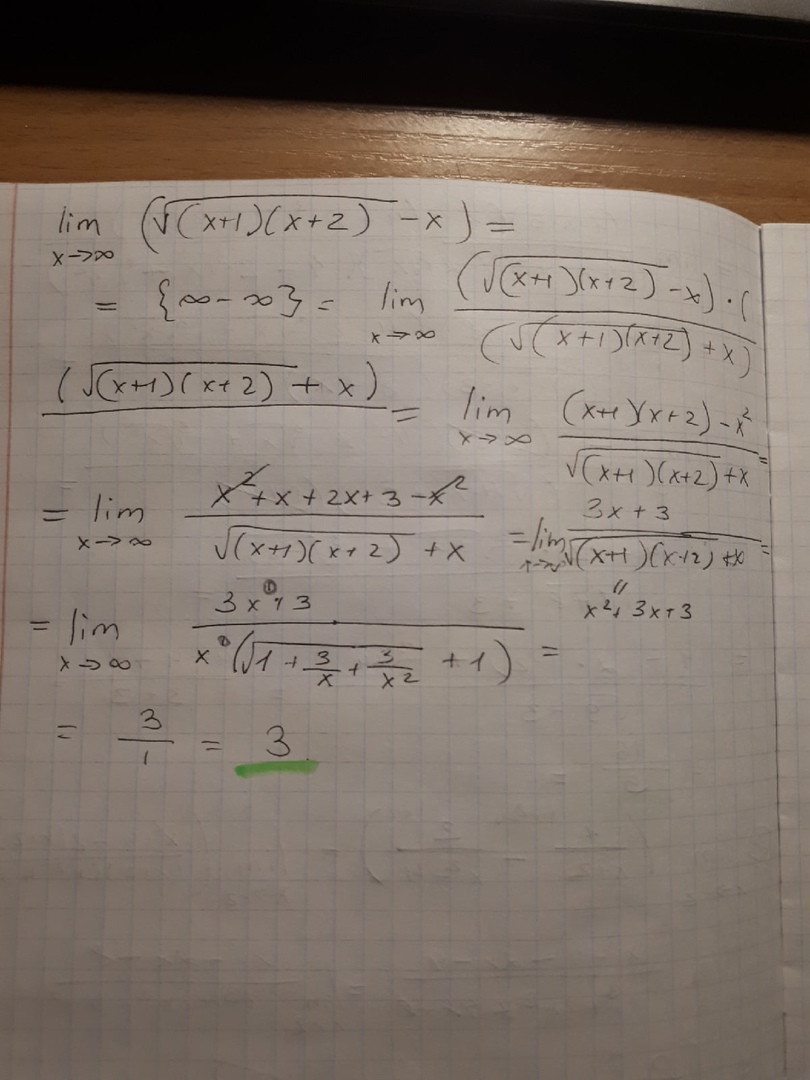 lim x→∞ (√((x+1)(x+2)) - x) =
= {∞-∞} = lim x→∞ (√((x+1)(x+2)) - x) · ( / (√((x+1)(x+2)) + x)
(√((x+1)(x+2)) + x) / = lim x→∞ ((x+1)(x+2) - x²) / (√((x+1)(x+2)) + x) =
= lim x→∞ (x² + x + 2x + 3 - x²) / (√((x+1)(x+2)) + x) = lim x→∞ (3x + 3) / (√((x+1)(x+2)) + x) =
x² + 3x + 3
= lim x→∞ (3x + 3) / (x(√(1 + 3/x + 3/x²) + 1)) =
= 3/1 = 3